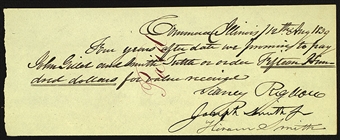 Commerce Illinois 12th Aug 1839
Four years after date we promise to pay
John Gillet and Smith Tuttle or order Fifteen Hun-
dred dollars for value received
Sidney Rigdon
Joseph Smith Jr
Hiram Smith